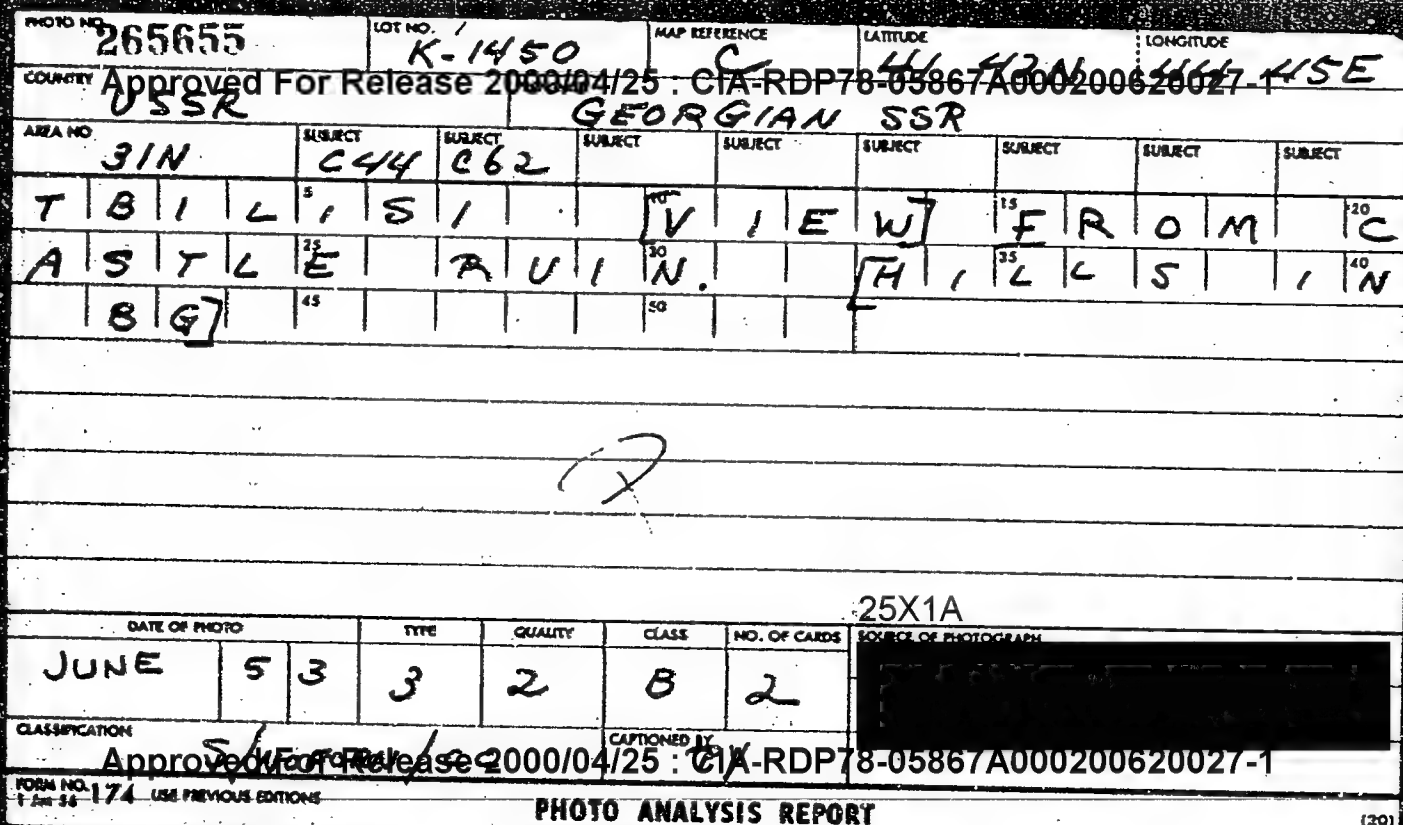 PHOTO NO. 265655 LOT NO. K-1450 MAP REFERENCE C LATITUDE 41 42N LONGITUDE 44 45E
Approved For Release 2000/04/25 : CIA-RDP78-05867A000200620027-1
COUNTRY USSR GEORGIAN SSR
AREA NO. 31N SUBJECT C44 SUBJECT C62 SUBJECT SUBJECT SUBJECT SUBJECT SUBJECT SUBJECT
TBIL 5 ISI 10 [VIEW] 15 FROM 20 C
ASTL 25 E RUI 30 N. [HI 35 LLS I 40 N
BG] 45 50
25X1A
DATE OF PHOTO TYPE QUALITY CLASS NO. OF CARDS SOURCE OF PHOTOGRAPH
JUNE 53 3 2 B 2
CLASSIFICATION CAPTIONED BY
Approved For Release 2000/04/25 : CIA-RDP78-05867A000200620027-1
FORM NO. 174 USE PREVIOUS EDITIONS PHOTO ANALYSIS REPORT (20)